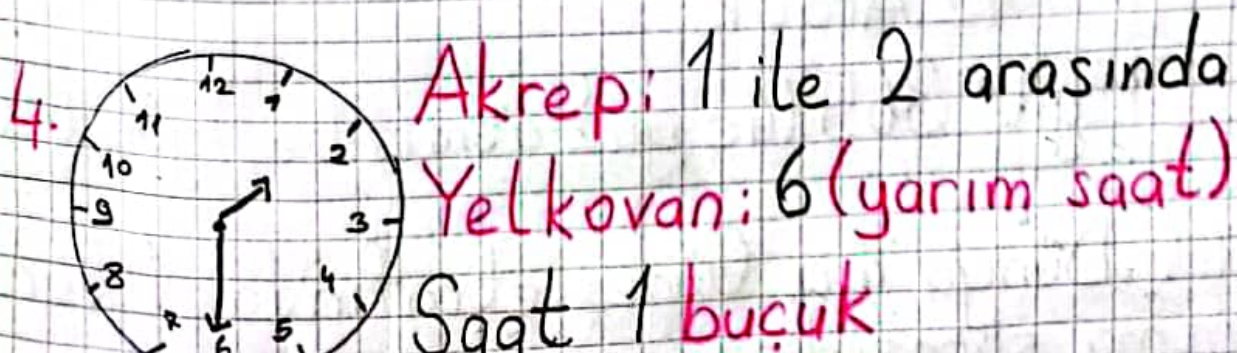 4.
12
1
11
2
10
9
3
8
4
7
5
6
Akrep: 1 ile 2 arasında
Yelkovan: 6 (yarım saat)
Saat 1 buçuk